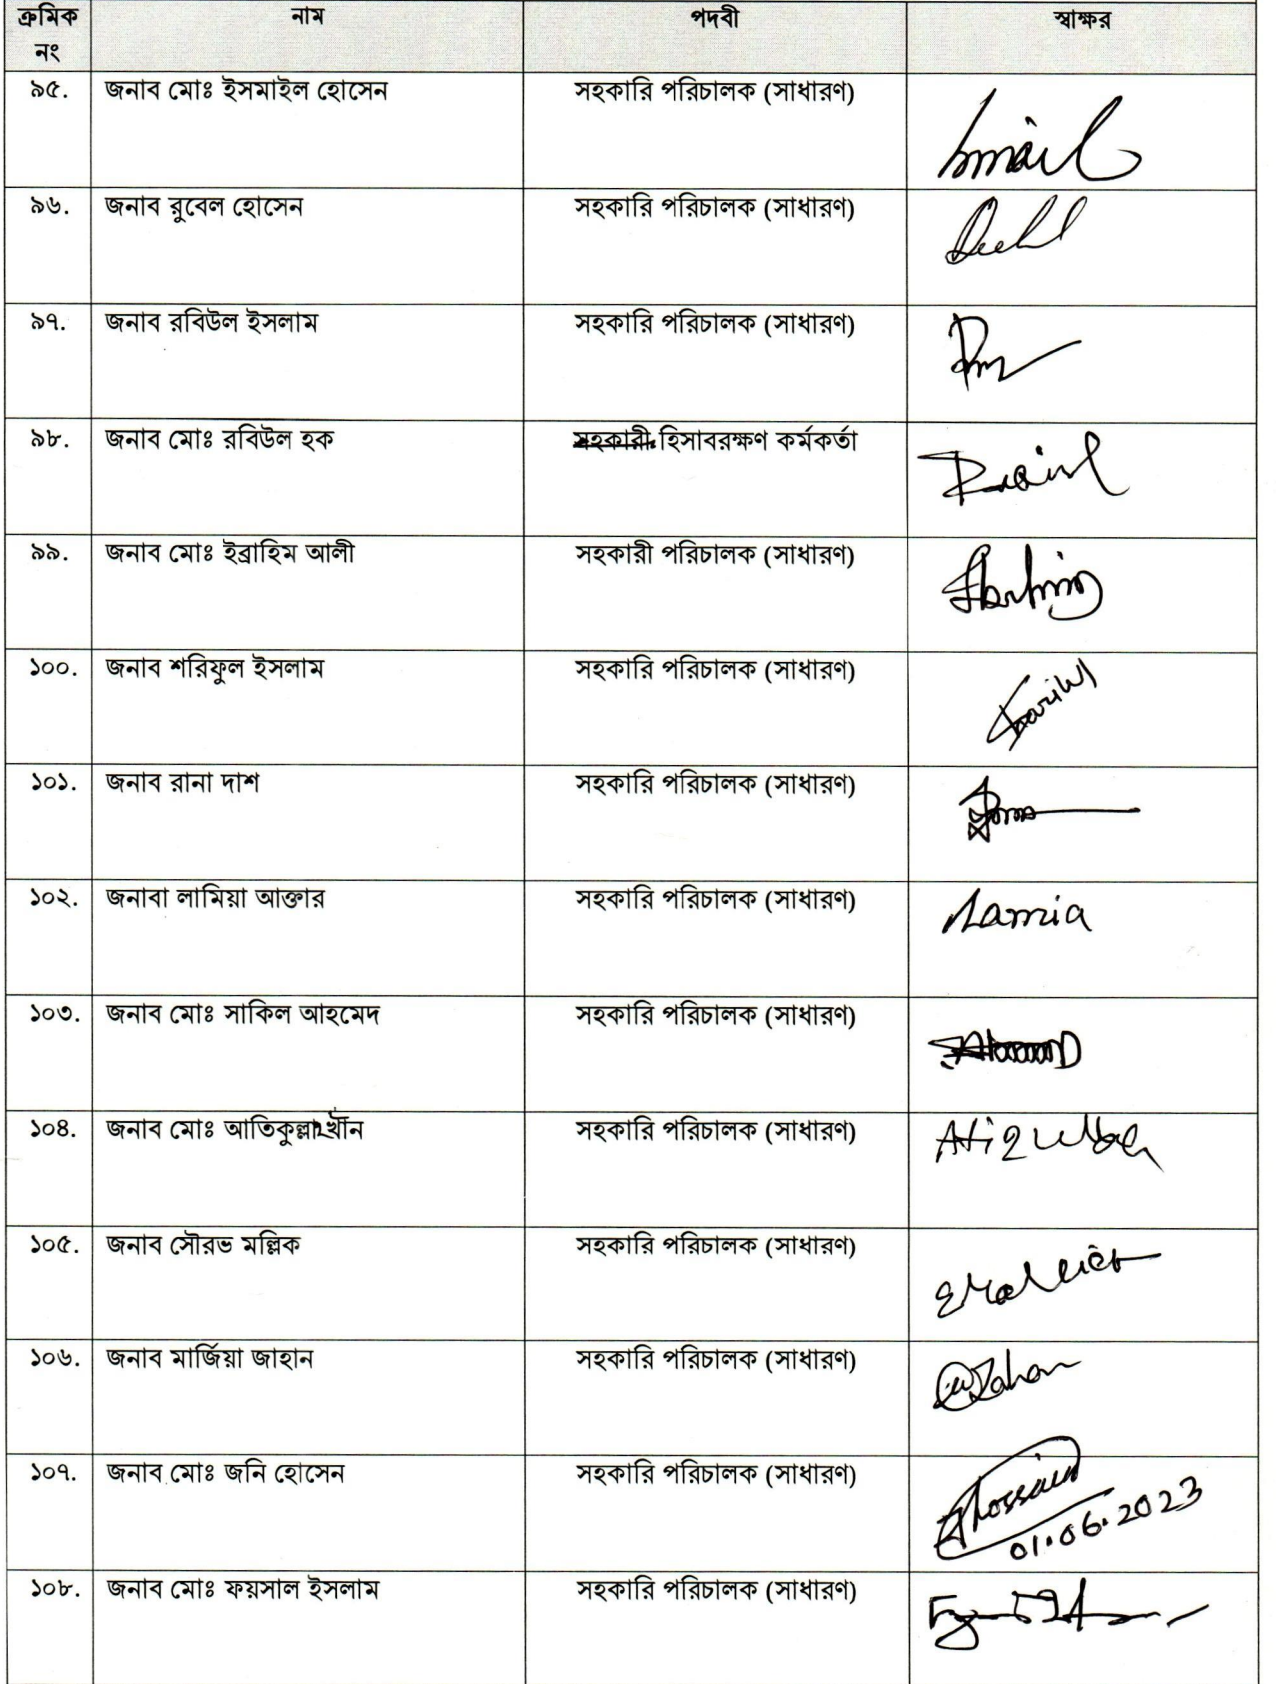 ক্রমিক নং নাম পদবী স্বাক্ষর
৯৫. জনাব মোঃ ইসমাইল হোসেন সহকারি পরিচালক (সাধারণ) Ismail
৯৬. জনাব রুবেল হোসেন সহকারি পরিচালক (সাধারণ)
৯৭. জনাব রবিউল ইসলাম সহকারি পরিচালক (সাধারণ)
৯৮. জনাব মোঃ রবিউল হক সহকারী হিসাবরক্ষণ কর্মকর্তা
৯৯. জনাব মোঃ ইব্রাহিম আলী সহকারী পরিচালক (সাধারণ)
১০০. জনাব শরিফুল ইসলাম সহকারি পরিচালক (সাধারণ)
১০১. জনাব রানা দাশ সহকারি পরিচালক (সাধারণ)
১০২. জনাবা লামিয়া আক্তার সহকারি পরিচালক (সাধারণ) Lamia
১০৩. জনাব মোঃ সাকিল আহমেদ সহকারি পরিচালক (সাধারণ)
১০৪. জনাব মোঃ আতিকুল্লাহ খাঁন সহকারি পরিচালক (সাধারণ)
১০৫. জনাব সৌরভ মল্লিক সহকারি পরিচালক (সাধারণ)
১০৬. জনাব মার্জিয়া জাহান সহকারি পরিচালক (সাধারণ)
১০৭. জনাব মোঃ জনি হোসেন সহকারি পরিচালক (সাধারণ) Hossain
01.06.2023
১০৮. জনাব মোঃ ফয়সাল ইসলাম সহকারি পরিচালক (সাধারণ)